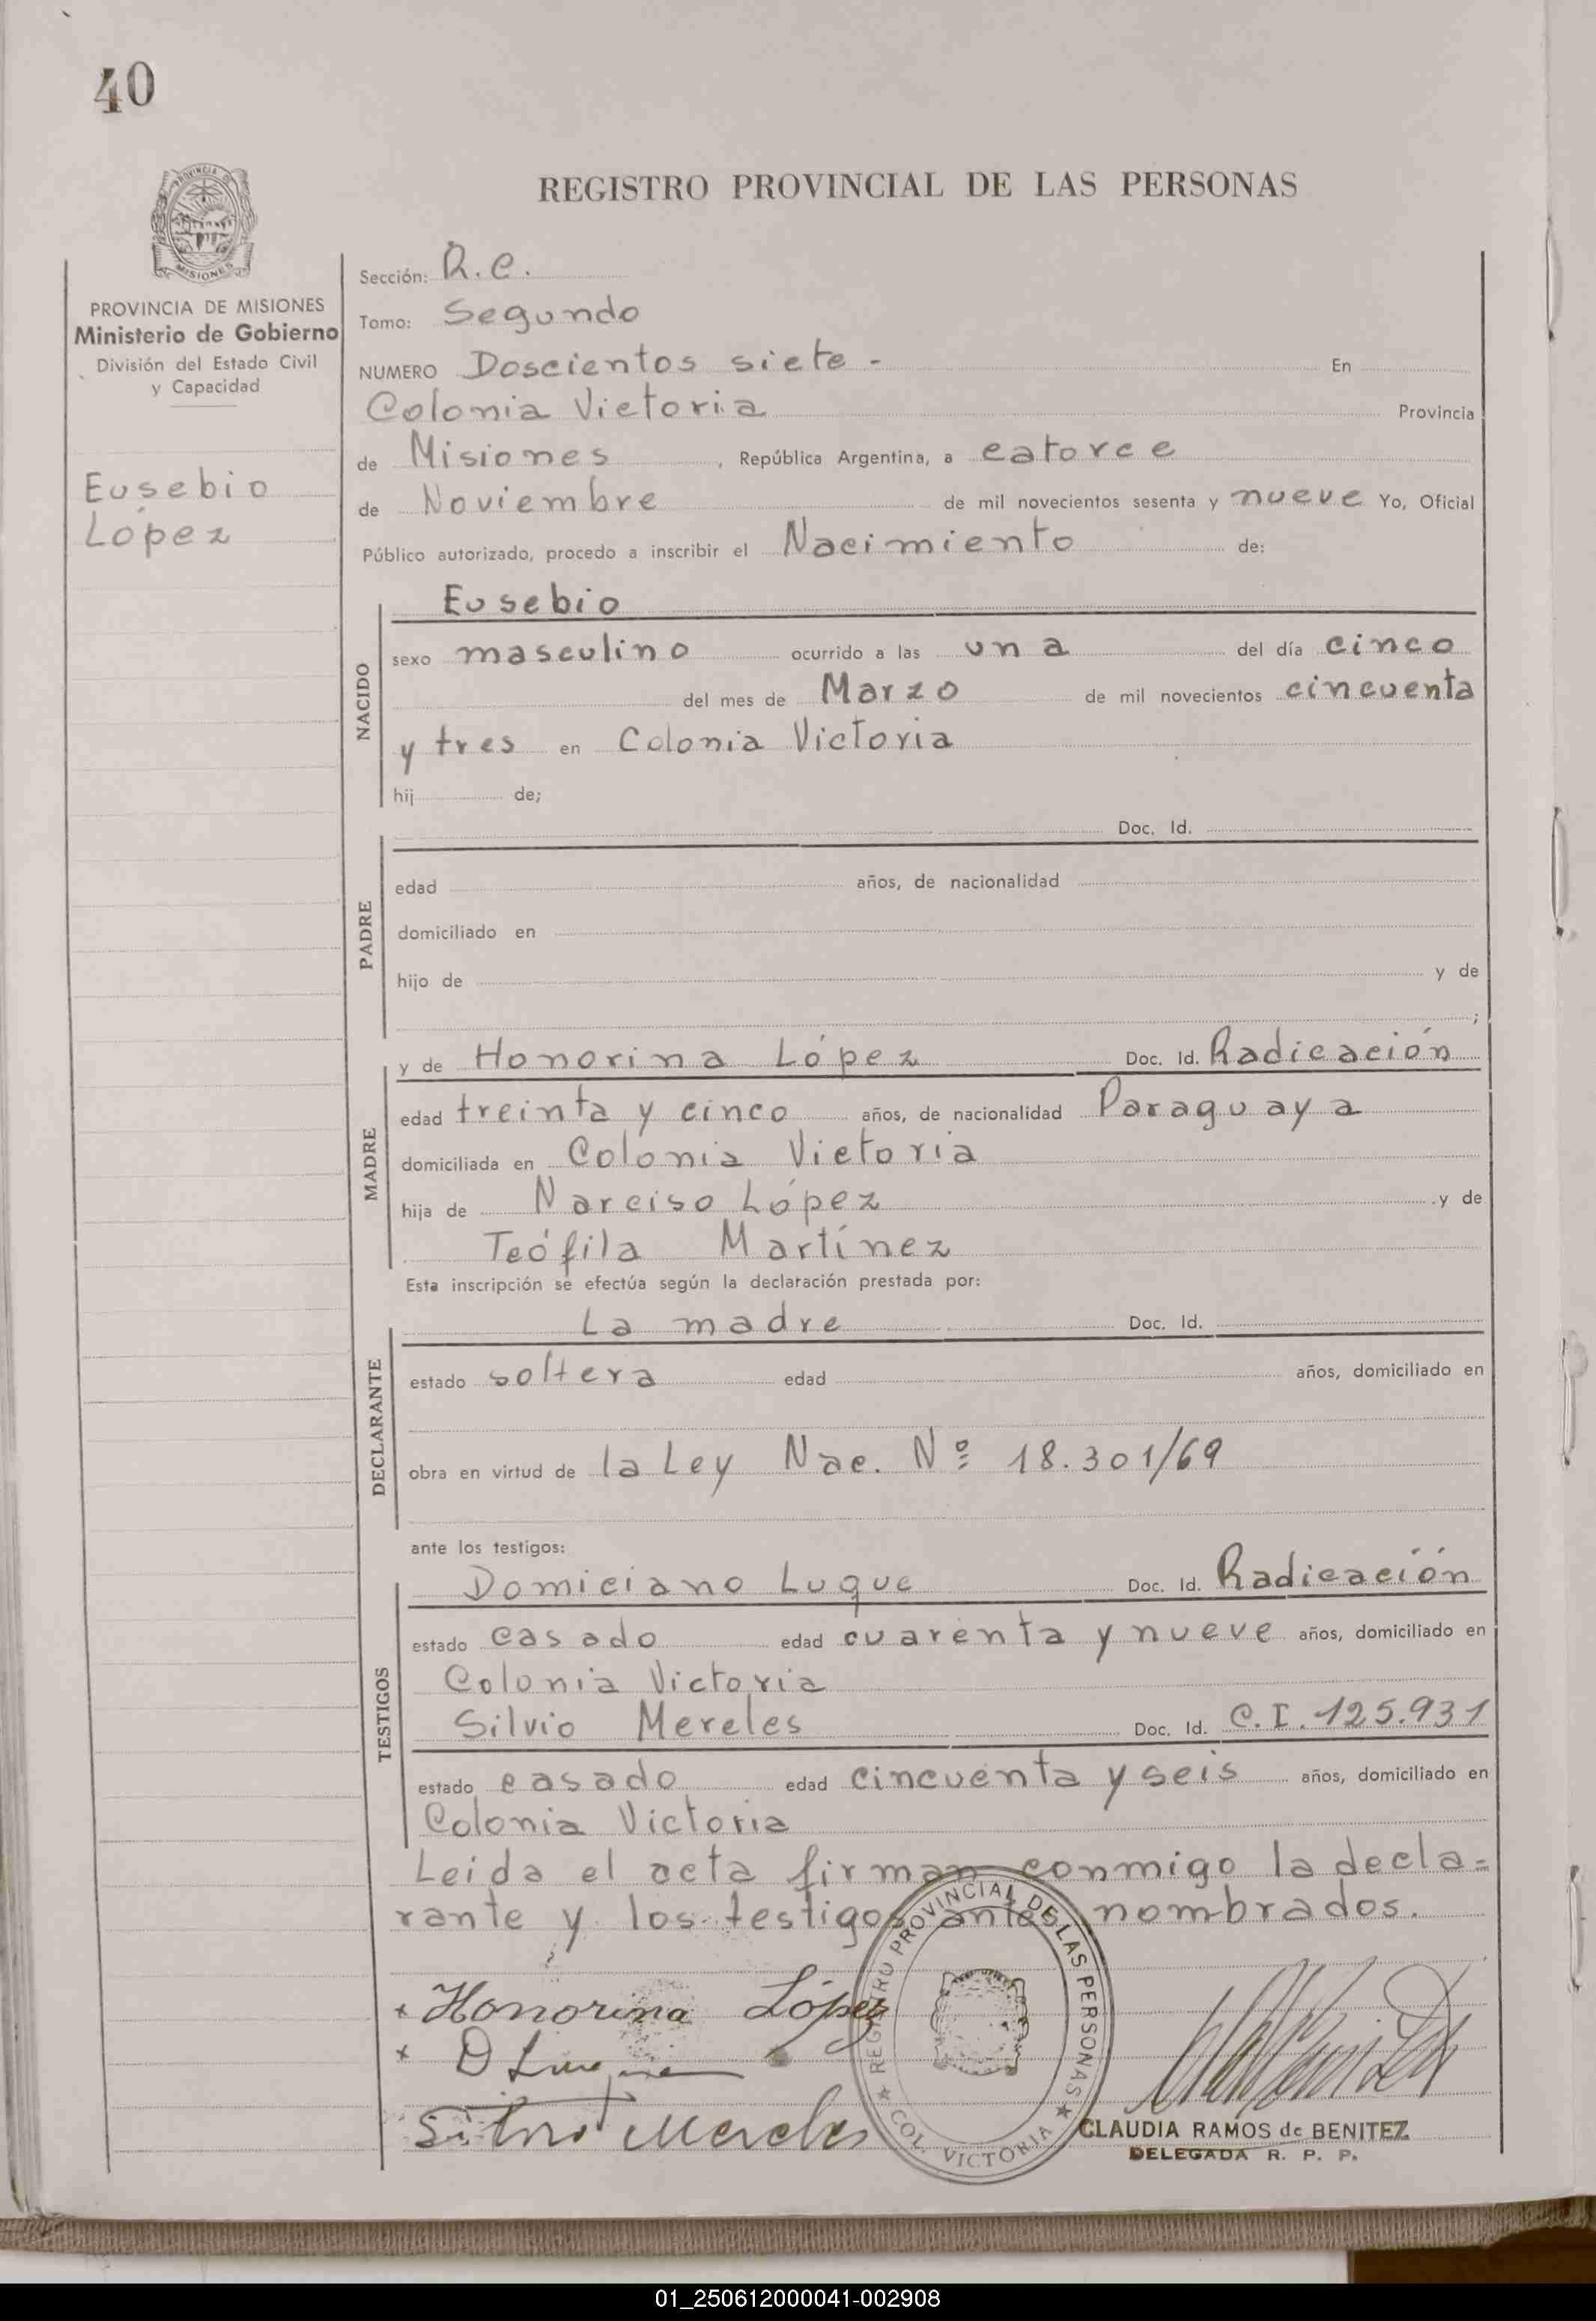 40
PROVINCIA DE
MISIONES
REGISTRO PROVINCIAL DE LAS PERSONAS
PROVINCIA DE MISIONES
Ministerio de Gobierno
División del Estado Civil
y Capacidad
Eusebio
López
Sección: R.C.
Tomo: Segundo
NUMERO Doscientos siete - En
Colonia Victoria Provincia
de Misiones, República Argentina, a catorce
de Noviembre de mil novecientos sesenta y nueve Yo, Oficial
Público autorizado, procedo a inscribir el Nacimiento de:
NACIDO
Eusebio
sexo masculino ocurrido a las una del día cinco
del mes de Marzo de mil novecientos cincuenta
y tres en Colonia Victoria
hij de;
PADRE
Doc. Id.
edad años, de nacionalidad
domiciliado en
hijo de y de
;
MADRE
y de Honorina López Doc. Id. Radicación
edad treinta y cinco años, de nacionalidad Paraguaya
domiciliada en Colonia Victoria
hija de Narciso López y de
Teófila Martínez
Esta inscripción se efectúa según la declaración prestada por:
DECLARANTE
La madre Doc. Id.
estado soltera edad años, domiciliado en
obra en virtud de la Ley Nac. Nº 18.301/69
ante los testigos:
TESTIGOS
Domiciano Luque Doc. Id. Radicación
estado casado edad cuarenta y nueve años, domiciliado en
Colonia Victoria
Silvio Mereles Doc. Id. C.I. 125.931
estado casado edad cincuenta y seis años, domiciliado en
Colonia Victoria
Leida el acta firman conmigo la decla=
rante y los testigos antes nombrados.
x Honorina López
x D Luque
Silvio Mereles
REGISTRO PROVINCIAL DE LAS PERSONAS
COL. VICTORIA
CLAUDIA RAMOS de BENITEZ
DELEGADA R. P. P.
01_250612000041-002908